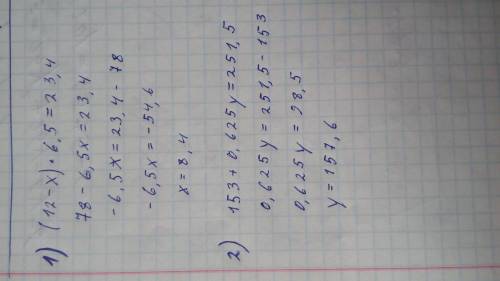 1) (12-x)·6,5=23,4
78-6,5x=23,4
-6,5x=23,4-78
-6,5x=-54,6
x=8,4
2) 153+0,625y=251,5
0,625y=251,5-153
0,625y=98,5
y=157,6